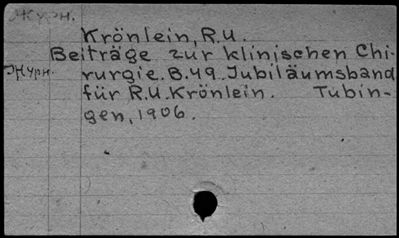 Журн.
Krönlein, R.U.
Beiträge zur klinischen Chi-
Журн. rurgie. B.49. Jubiläumsband
für R.U. Krönlein. Tubin-
gen, 1906.